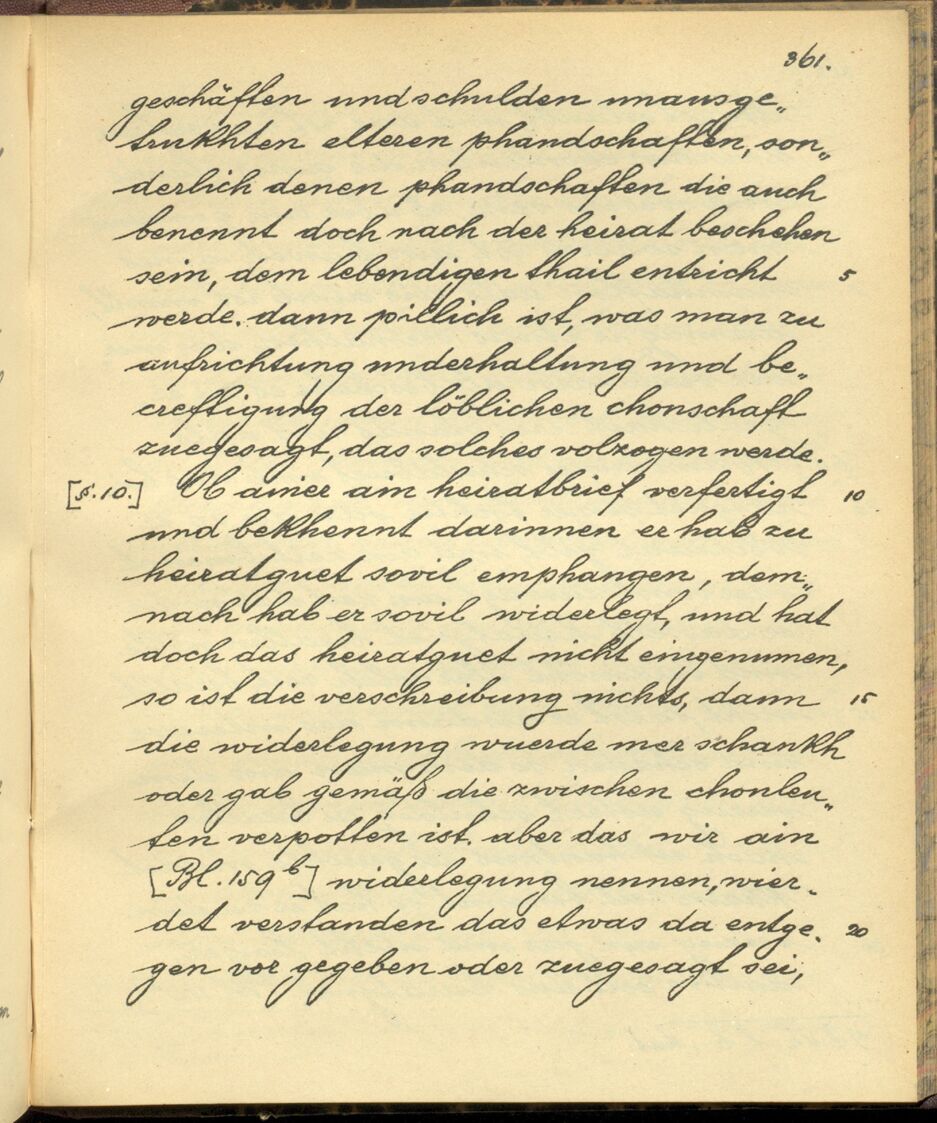 361.
geschäften und schulden unausge„
trukhten elteren phandschaften, son„
derlich denen phandschaften die auch
benennt doch nach der heirat beschehen
sein, dem lebendigen thail entricht 5
werde. dann pillich ist, was man zu
aufrichtung underhaltung und be„
creftigung der löblichen chonschaft
zuegesagt, das solches volzogen werde.
[§. 10.] Ob ainer ain heiratbrief verfertigt 10
und bekhennt darinnen er hab zu
heiratguet sovil emphangen, dem„
nach hab er sovil widerlegt, und hat
doch das heiratguet nicht eingenumen,
so ist die verschreibung nichts, dann 15
die widerlegung wuerde mer schankh
oder gab gemäß die zwischen chonleu„
ten verpotten ist. aber das wir ain
[Bl. 159 b] widerlegung nennen, wier-
det verstanden das etwas da entge- 20
gen vor gegeben oder zuegesagt sei,